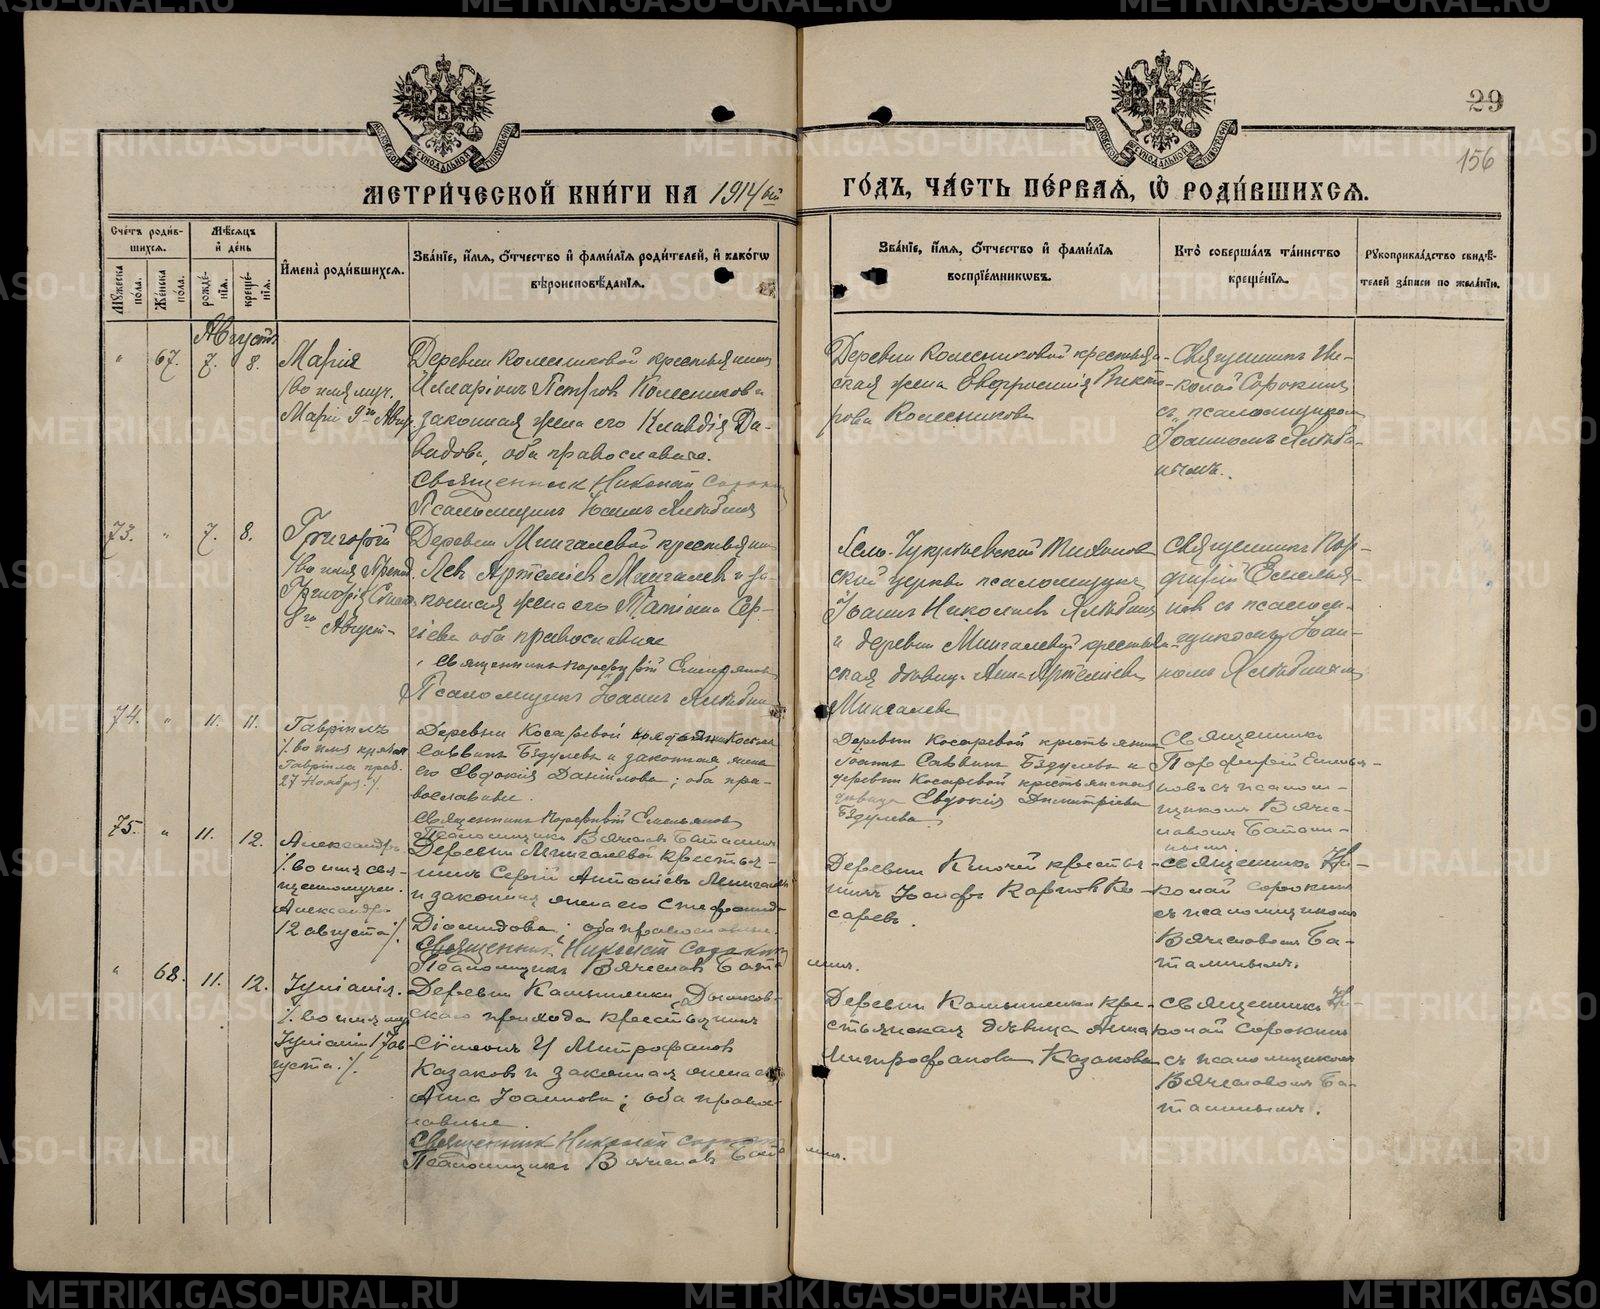 METRIKI.GASO-URAL.RU
29
156
МЕТРИ́ЧЕСКОЙ КНИ́ГИ НА 1914ый ГО́ДЪ, ЧА́СТЬ ПЕ́РВАЯ, Ѡ҆ РОДИ́ВШИХСЯ.
Сче́тъ роди́в-
шихся.
Му́жеска по́ла.
Же́нска по́ла.
Мѣ́сяцъ и҆ де́нь
рожде́-
нїя.
креще́-
нїя.
И҆мена̀ роди́вшихся.
Зва́нїе, и҆́мя, ѻ҆́тчество и҆ фами́лїя роди́телей, и҆ како́гѡ
вѣроисповѣ́данїя.
Зва́нїе, и҆́мя, ѻ҆́тчество и҆ фами́лїя
воспрїе́мникѡвъ.
Кто̀ соверша́лъ та́инство
креще́нїя.
Рꙋкоприкла́дство свидѣ́-
телей за́писи по жела́нїю.
Августъ
" 67. 7. 8.
Марія
/во имя муч.
Маріи 9го Авг.
Деревни Колесниковой крестьянинъ
Илларіонъ Петровъ Колесниковъ
законная жена его Клавдія Да-
видова, оба православные.
Священник Николай Сорокин
Псаломщикъ Іоаннъ
Деревни Колесниковой крестьян-
ская жена Евфросинія Викто-
рова Колесникова
Священникъ Ни-
колай Сорокинъ
съ псаломщикомъ
Іоанномъ
73. " 7. 8.
Григорій
/во имя
Григорія
Август
Деревни Мингалевой крестьянинъ
Левъ Артеміев Мингалевъ и за-
конная жена его Татіана Сер-
гіева оба православные
Священникъ Порфирій Емельянов
Псаломщикъ Іоаннъ
Село
ской церкви псаломщикъ
Іоаннъ Николаев
и деревни Мингалевой крестьян-
ская девица Анна Артеміева
Мингалева
Священникъ Пор-
фирій Емелья-
нов съ псалом-
щикомъ Іоан-
номъ
74. " 11. 11.
Гавріилъ
/. во имя
Гавріила
27 Ноября. /.
Деревни Косаревой
Саввинъ Бздулевъ и законная жена
его Евдокія Даніилова; оба пра-
вославные.
Священникъ Порфирій Емельянов
Псаломщикъ Вячеслав
Деревни Косаревой крестьянинъ
Саввинъ Бздулевъ и
деревни Косаревой крестьянская
девица Евдокія Димитріева
Бздулева.
Священникъ
Порфирій Емелья-
новъ съ псалом-
щикомъ Вяче-
славомъ
75. " 11. 12.
Александръ
/. во имя свя-
щенномучен.
Александра
12 августа /.
Деревни Мингалевой крестья-
нинъ Сергій Антоніевъ Мингалевъ
и законная жена его Стефанида
Діомидова; оба православные.
Священник Николай Сорокин
Псаломщикъ Вячеслав
Деревни Ключей крестья-
нинъ Карпов Ко-
сарев.
Священникъ Ни-
колай Сорокинъ
съ псаломщикомъ
Вячеславомъ
" 68. 11. 12.
Іуліанія.
/. во имя муч.
Іуліаніи 17 ав-
густа. /.
Деревни Камышенки
скаго прихода крестьянинъ
Сѵмеонъ Митрофановъ
Казаковъ и законная жена его
Анна Іоаннова; оба право-
славные.
Священник Николай Сорокин
Псаломщикъ Вячеславъ
Деревни Камышенки кре-
стьянская девица Анна
Митрофанова Казакова
Священникъ Ни-
колай Сорокинъ
съ псаломщикомъ
Вячеславомъ